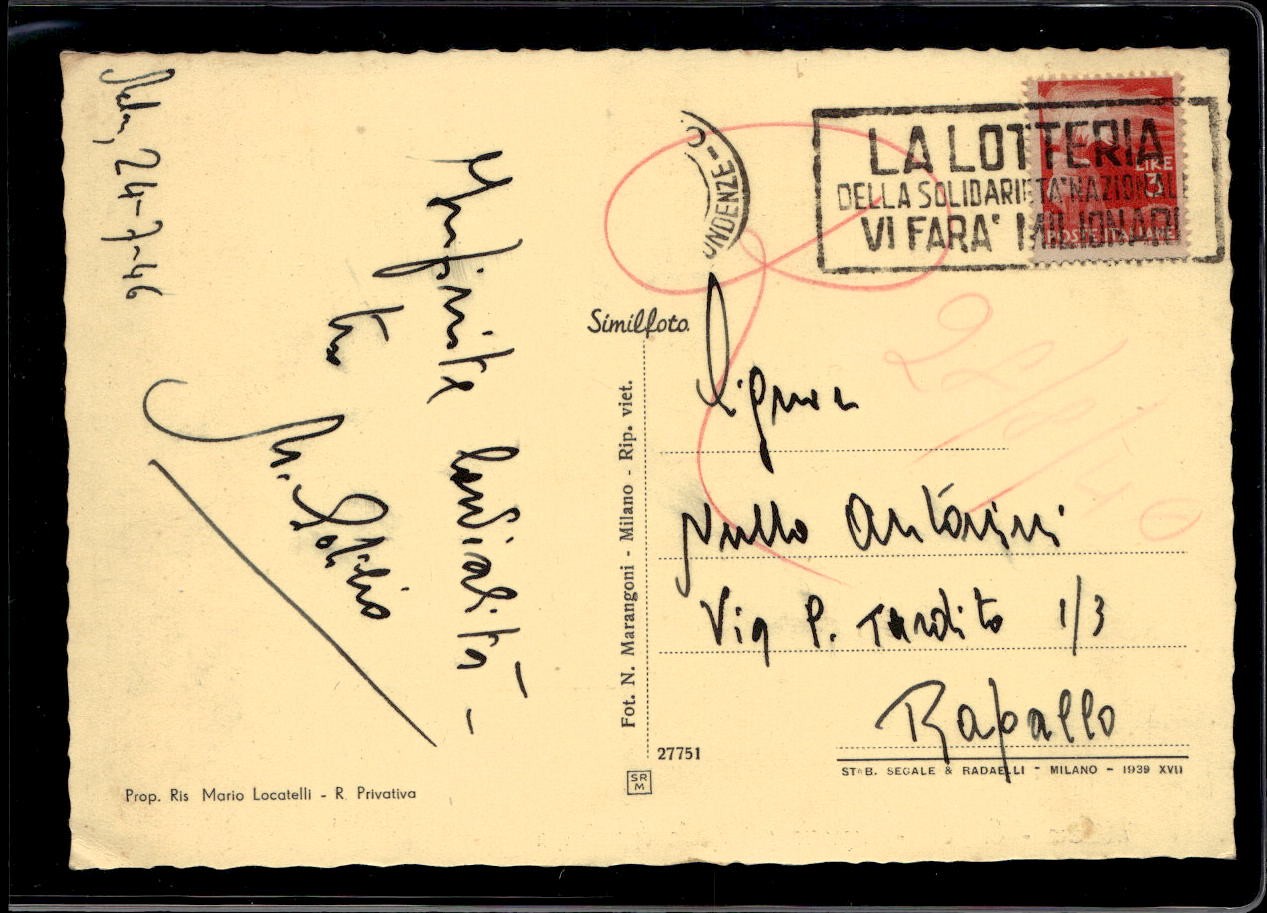 24-7-46
Infinite cordialità -
tuo
LA LOTTERIA
DELLA SOLIDARIETA' NAZIONALE
VI FARA' MILIONARI
LIRE
3
POSTE ITALIANE
ONDENZE - C
Similfoto
Fot. N. Marangoni - Milano - Rip. viet.
Signor
Nullo Antonini
Via P. Tardito 1/3
Rapallo
27751
SRM
STAB. SEGALE & RADAELLI - MILANO - 1939 XVII
Prop. Ris Mario Locatelli - R. Privativa